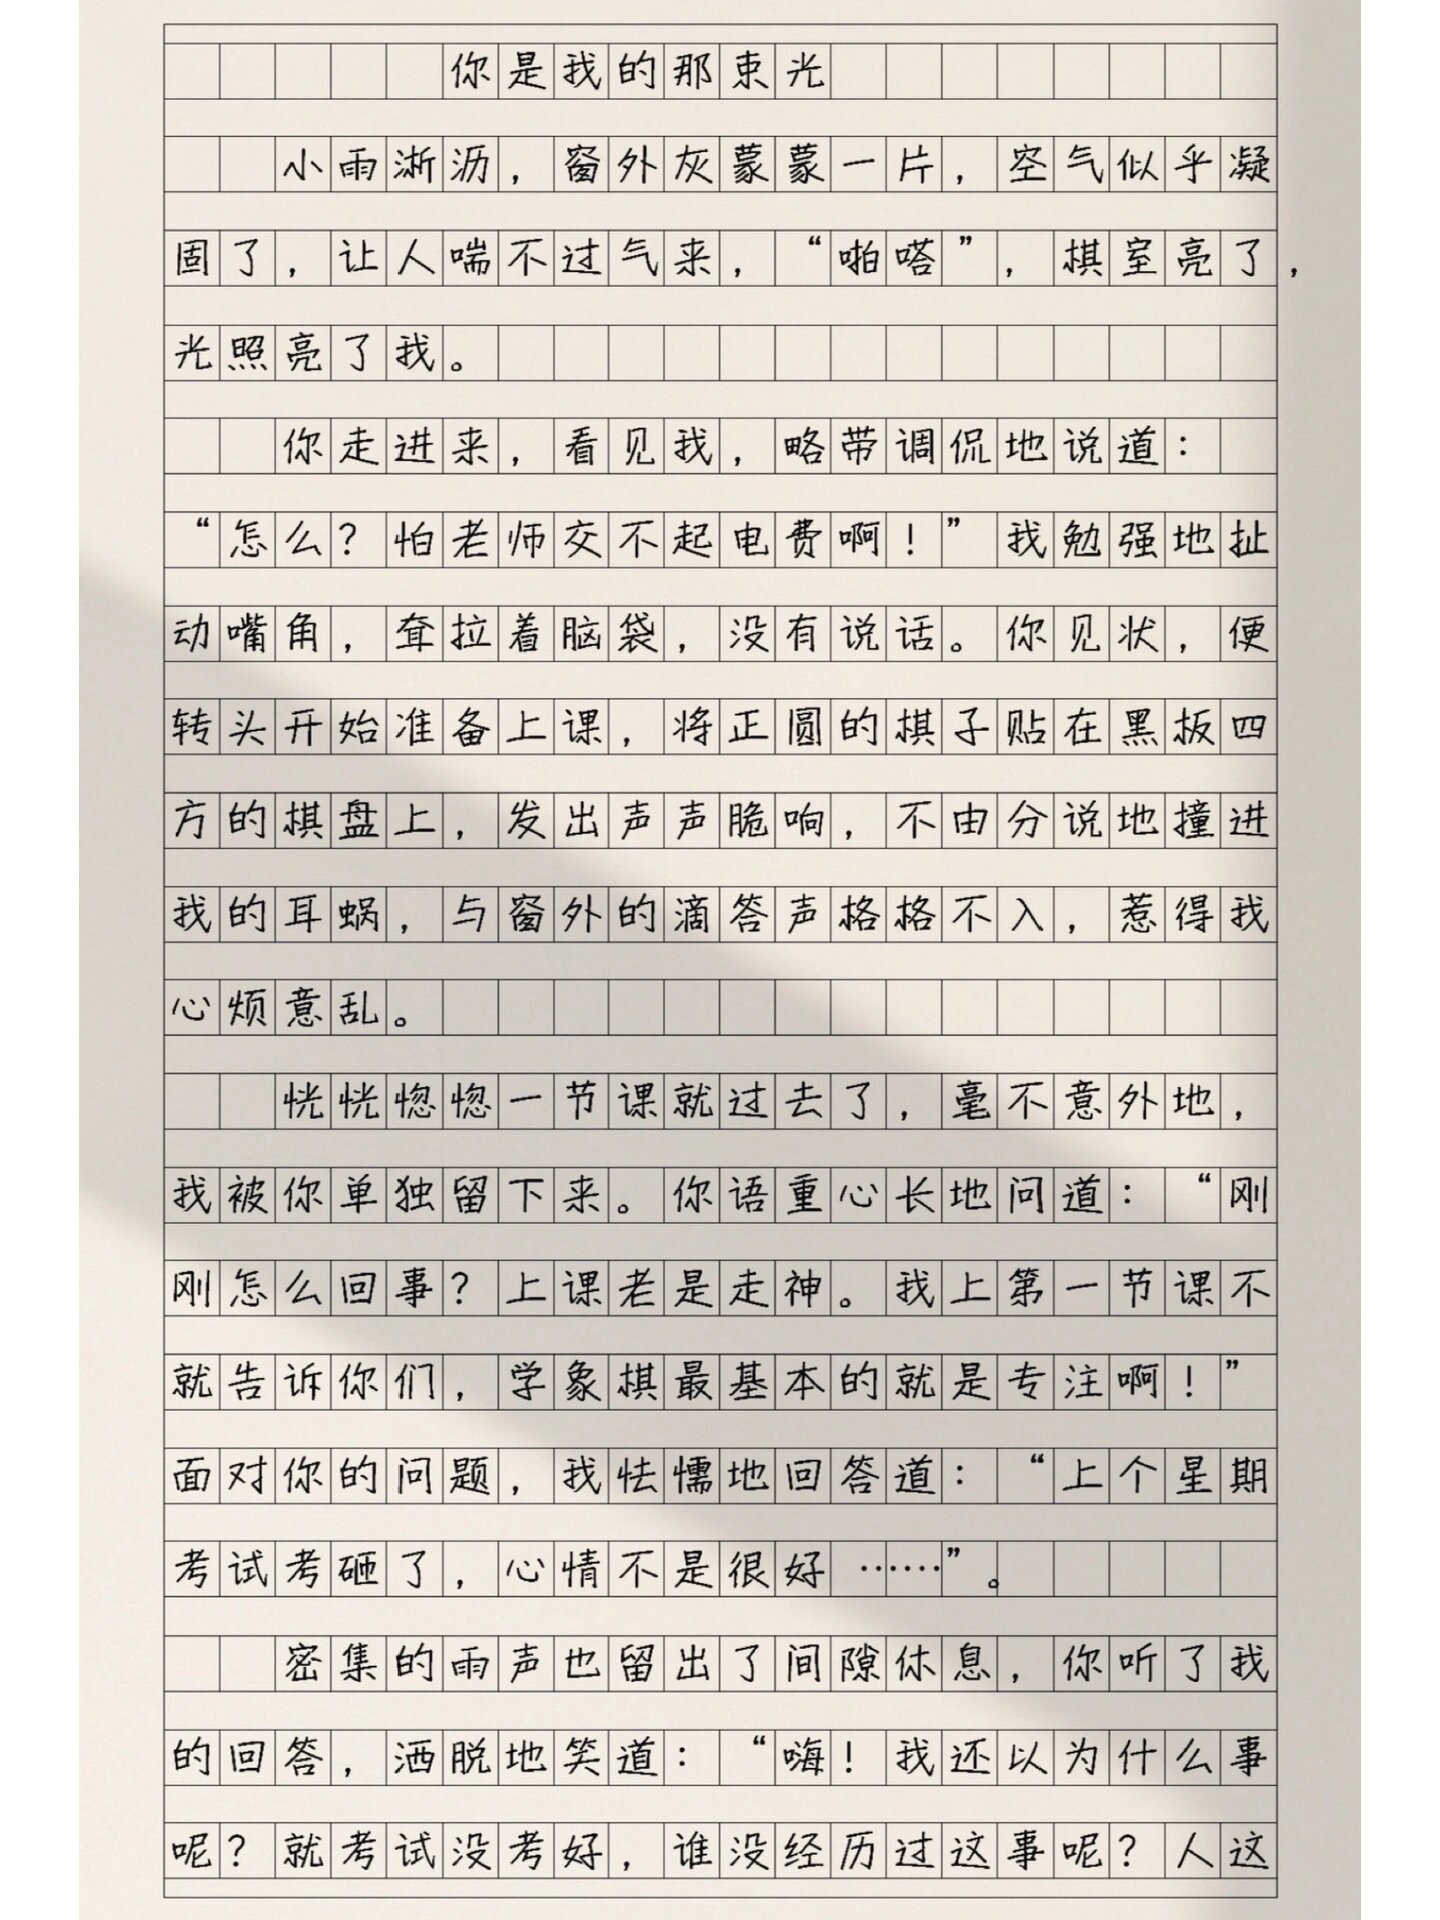 你是我的那束光
小雨淅沥，窗外灰蒙蒙一片，空气似乎凝
固了，让人喘不过气来，“啪嗒”，棋室亮了，
光照亮了我。
你走进来，看见我，略带调侃地说道：
“怎么？怕老师交不起电费啊！”我勉强地扯
动嘴角，耷拉着脑袋，没有说话。你见状，便
转头开始准备上课，将正圆的棋子贴在黑板四
方的棋盘上，发出声声脆响，不由分说地撞进
我的耳蜗，与窗外的滴答声格格不入，惹得我
心烦意乱。
恍恍惚惚一节课就过去了，毫不意外地，
我被你单独留下来。你语重心长地问道：“刚
刚怎么回事？上课老是走神。我上第一节课不
就告诉你们，学象棋最基本的就是专注啊！”
面对你的问题，我怯懦地回答道：“上个星期
考试考砸了，心情不是很好……”。
密集的雨声也留出了间隙休息，你听了我
的回答，洒脱地笑道：“嗨！我还以为什么事
呢？就考试没考好，谁没经历过这事呢？人这